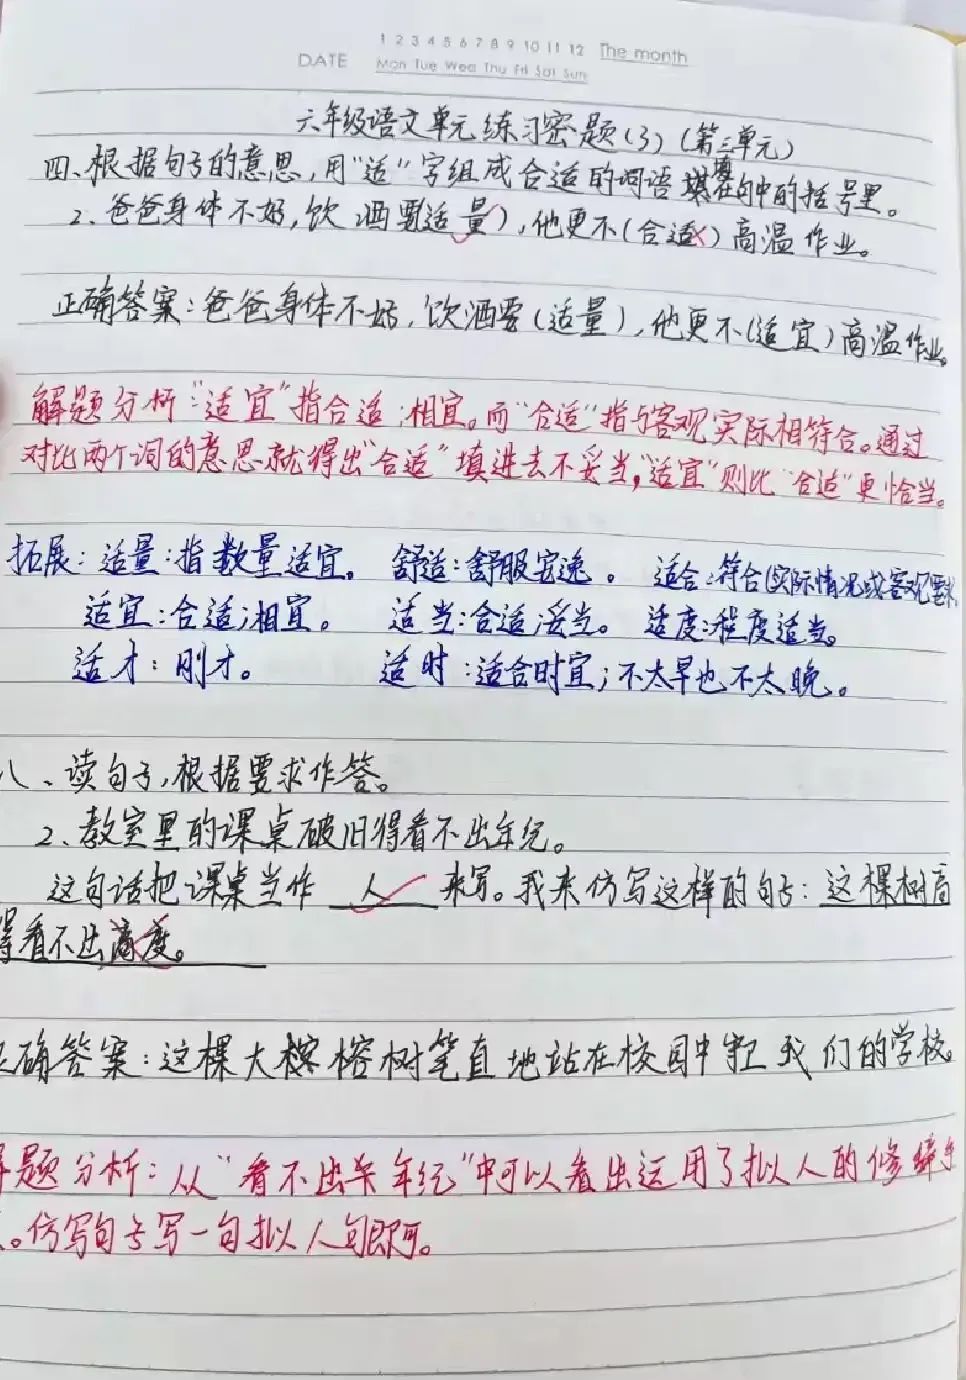 1 2 3 4 5 6 7 8 9 10 11 12 The month
DATE Mon Tue Wed Thu Fri Sat Sun
六年级语文单元练习密题(3)(第三单元)
四、根据句子的意思,用“适”字组成合适的词语填在句中的括号里。
2、爸爸身体不好,饮酒要适量),他更不(合适)高温作业。
正确答案:爸爸身体不好,饮酒要(适量),他更不(适宜)高温作业。
解题分析“适宜”指合适;相宜。而“合适”指与客观实际相符合。通过
对比两个词的意思就得出“合适”填进去不妥当,“适宜”则比“合适”更恰当。
拓展:适量:指数量适宜。 舒适:舒服安逸。 适合:符合(实际情况或客观要求
适宜:合适;相宜。 适当:合适;妥当。 适度:程度适当。
适才:刚才。 适时:适合时宜;不太早也不太晚。
八、读句子,根据要求作答。
2、教室里的课桌破旧得看不出年纪。
这句话把课桌当作 人 来写。我来仿写这样的句子:这棵树高
得看不出高度。
正确答案:这棵大榕树笔直地站在校园中守卫我们的学校。
解题分析:从“看不出年纪”中可以看出运用了拟人的修辞手
。仿写句子写一句拟人句即可。